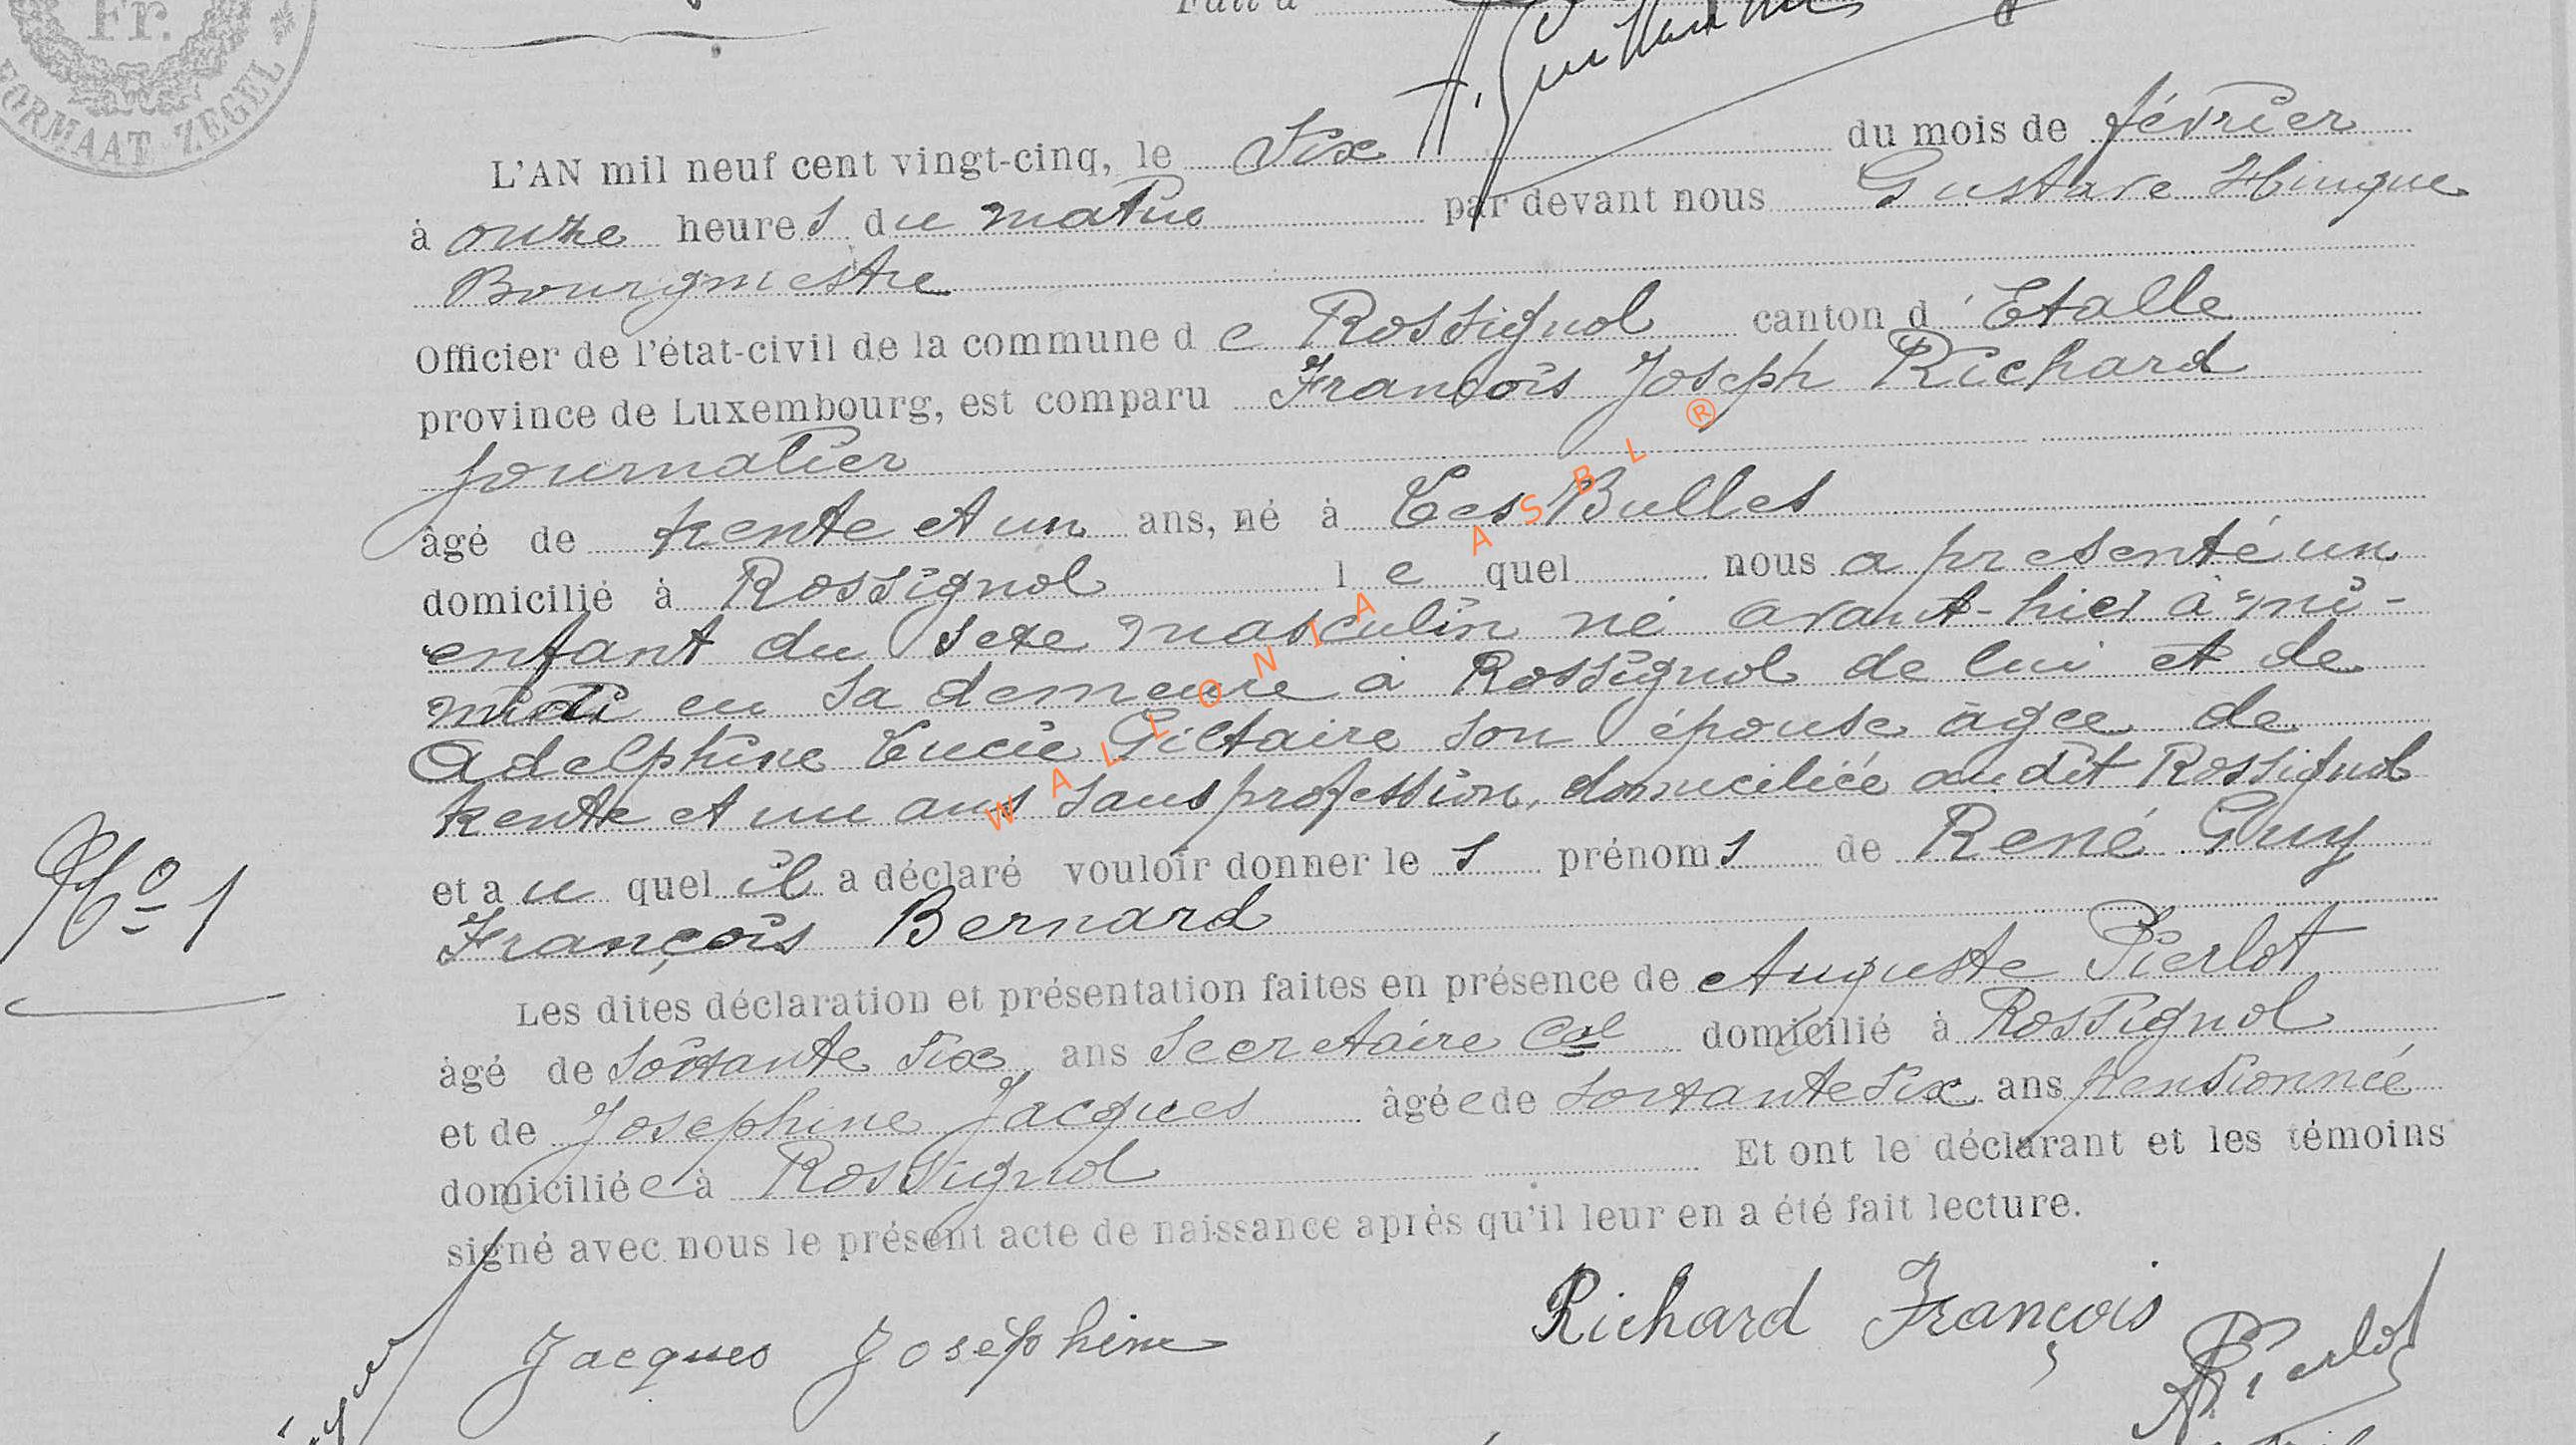 Fr.
FORMAAT ZEGEL
Fait à
L'AN mil neuf cent vingt-cinq, le Six du mois de février
à onze heures du matin par devant nous Gustave Hinque
Bourgmestre
Officier de l'état-civil de la commune de Rossignol canton d'Etalle
province de Luxembourg, est comparu François Joseph Richard
journalier
âgé de trente et un ans, né à Les Bulles
domicilié à Rossignol lequel nous a presenté un
enfant du sexe masculin né avant-hier à mi-
midi en sa demeure à Rossignol de lui et de
Adelphine Lucie Giltaire son épouse âgée de
trente et un ans sans profession, domiciliée audit Rossignol
et au quel il a déclaré vouloir donner les prénoms de René Guy
François Bernard
No 1
Les dites déclaration et présentation faites en présence de Auguste Pierlot
âgé de soixante six ans secrétaire Cal domicilié à Rossignol
et de Josephine Jacques âgée de soixante six ans pensionnée
domiciliée à Rossignol Et ont le déclarant et les témoins
signé avec nous le présent acte de naissance après qu'il leur en a été fait lecture.
Richard François
Jacques Joséphine
A Pierlot
WALLONIA ASBL ®